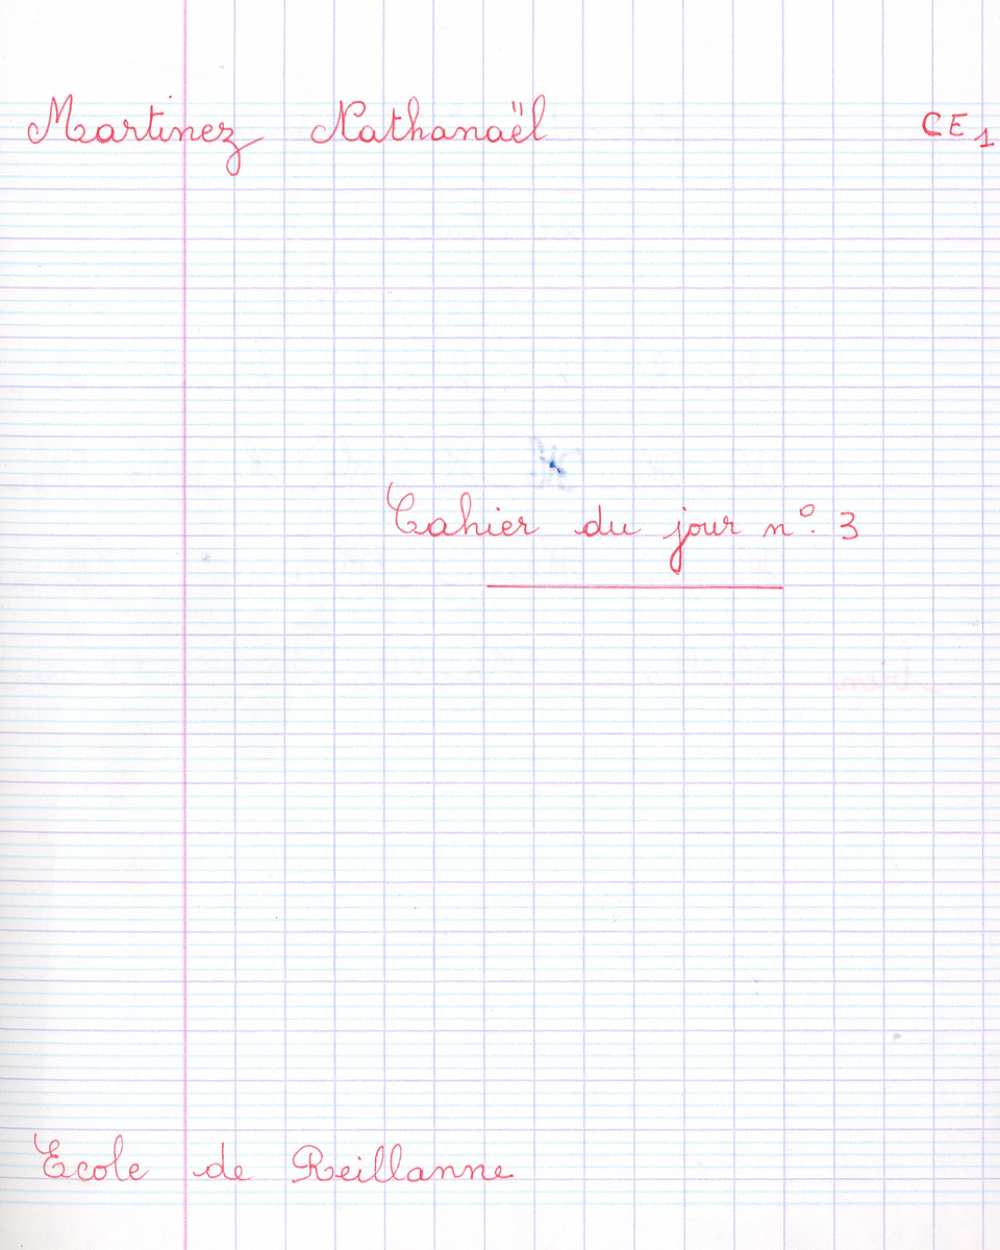 Martinez Nathanaël CE1
Cahier du jour n°. 3
Ecole de Reillanne